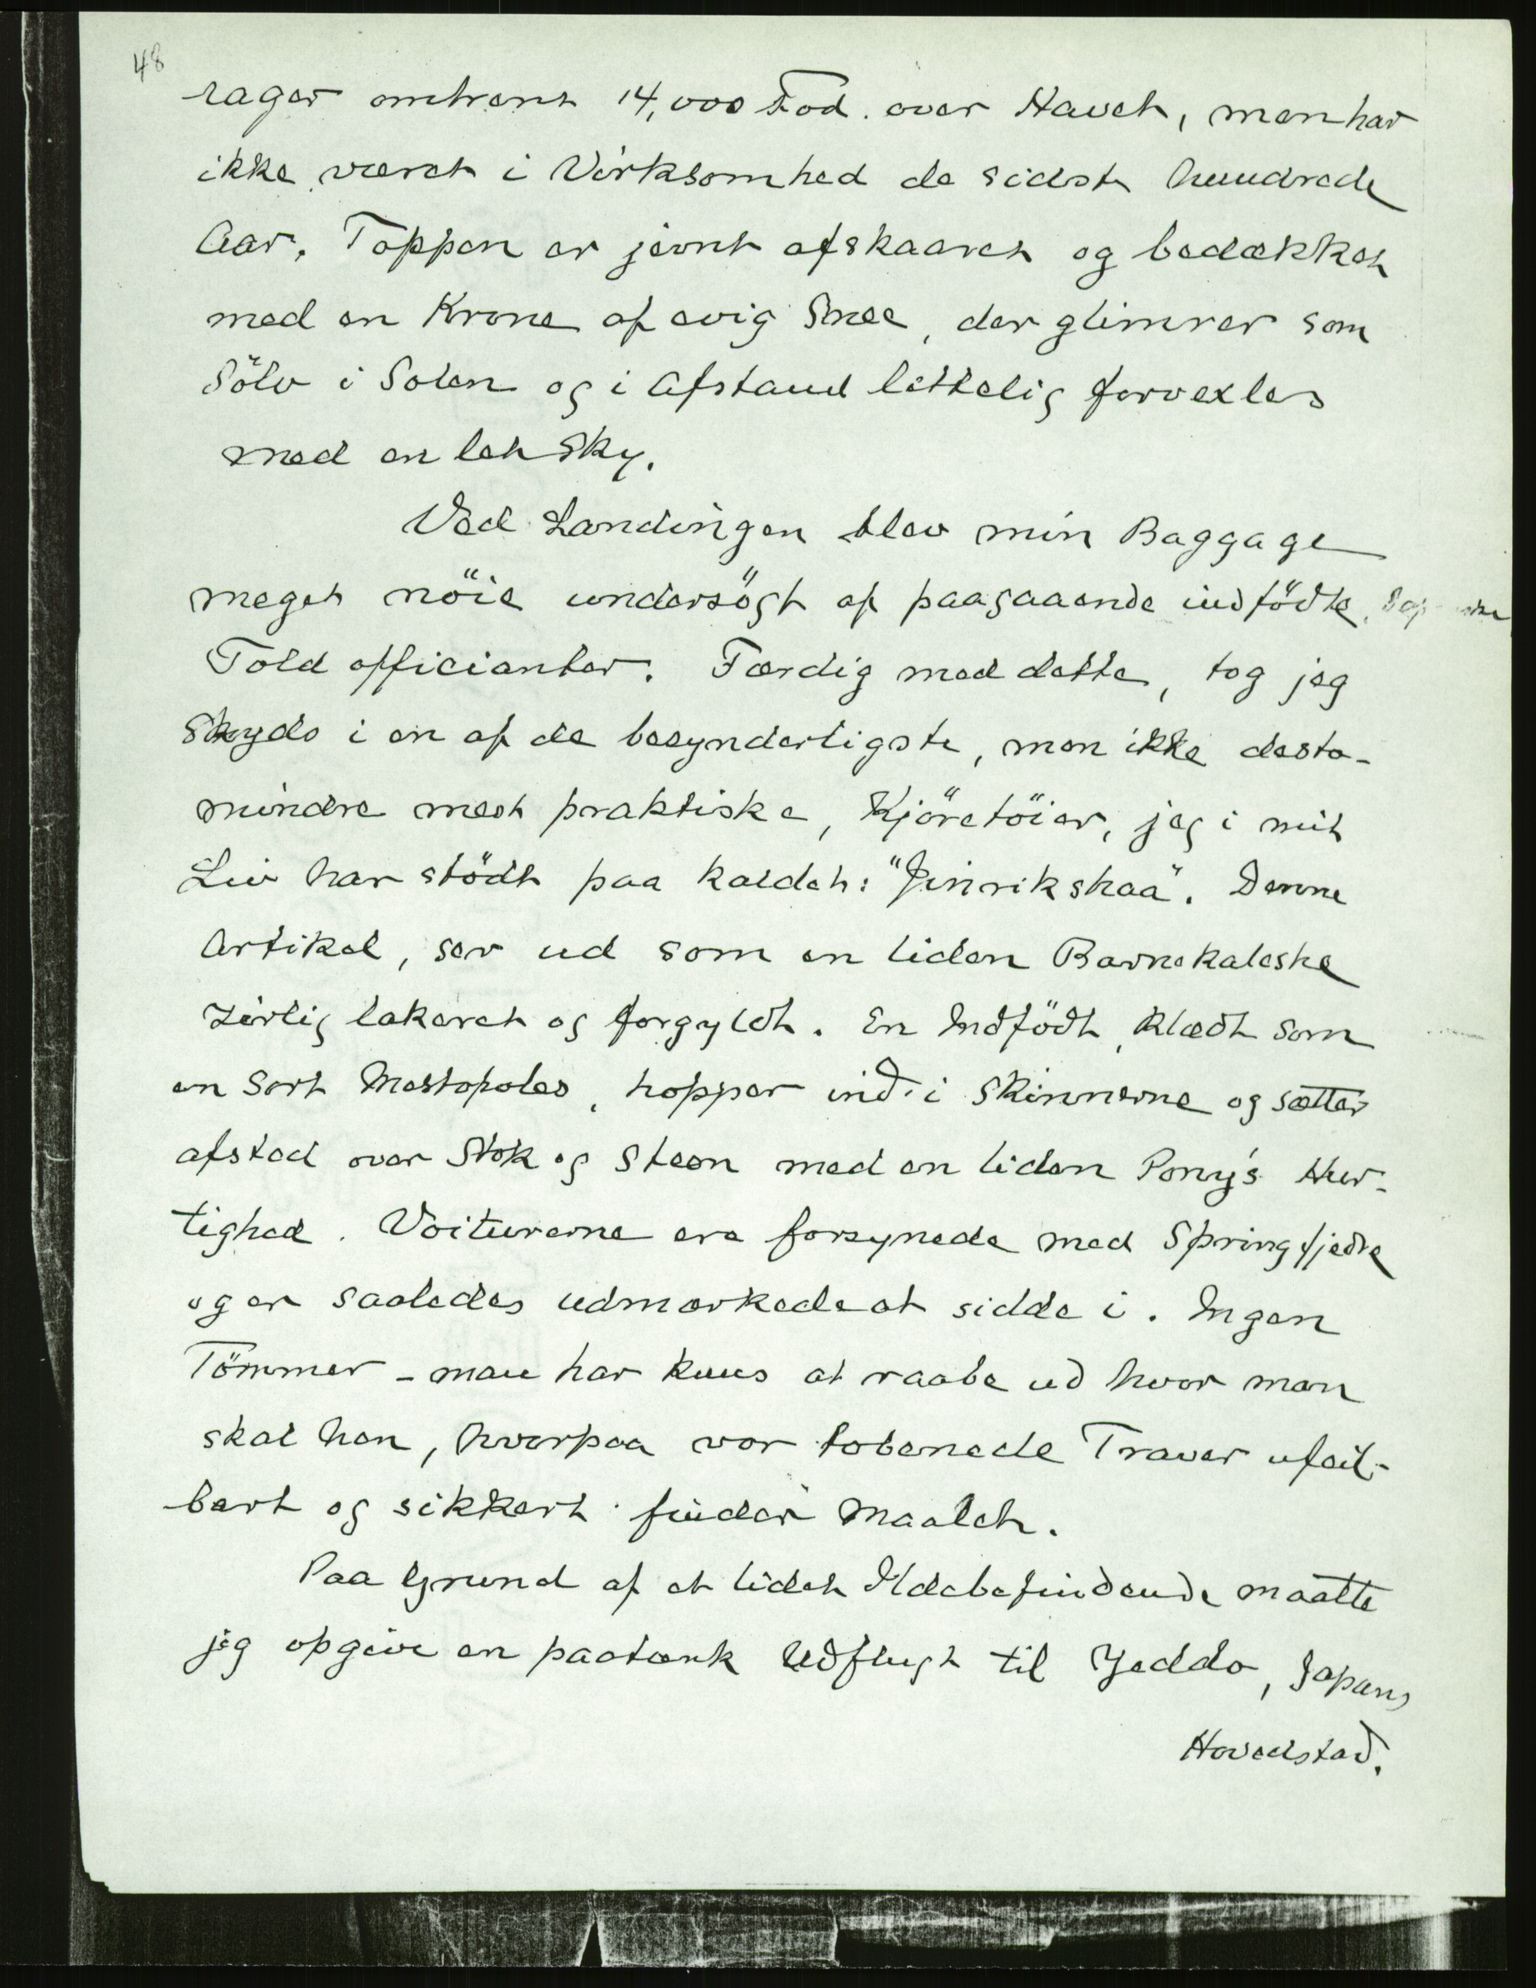 48
rager omtrent 14,000 Fod. over Havet, men har
ikke været i Virksomhed de sidste hundrede
Aar. Toppen er jevnt afskaaret og bedækket
med en Krone af evig Snee, der glimrer som
Sölv i Solen og i Afstand lettelig forvexles
med en let Sky.
Ved Landingen blev min Baggage
meget nöie undersögt af paagaaende indfödte,
Told officianter. Færdig med dette, tog jeg
Skyds i en af de besynderligste, men ikke desto-
mindre mest praktiske, Kjöretöier, jeg i mit
Liv har stödt paa kaldet: "Jinrikshaa". Denne
Artikel, ser ud som en liden Barnekaleske
zirlig lakeret og forgyldt. En Indfödt, klædt som
en Sort Mestopoles, hopper ind i Skinnerne og sætter
afsted over Stok og Steen med en liden Pony's Hur-
tighed. Voiturerne ere forsynede med Springfjedre
og er saaledes udmærkede at sidde i. Ingen
Tömmer - man har kuns at raabe ud hvor man
skal hen, hvorpaa vor tobenede Traver ufeil-
bart og sikkert finder Maalet.
Paa Grund af et lidet Ildebefindende maatte
jeg opgive en paatænk Udflugt til Yeddo, Japans
Hovedstad.